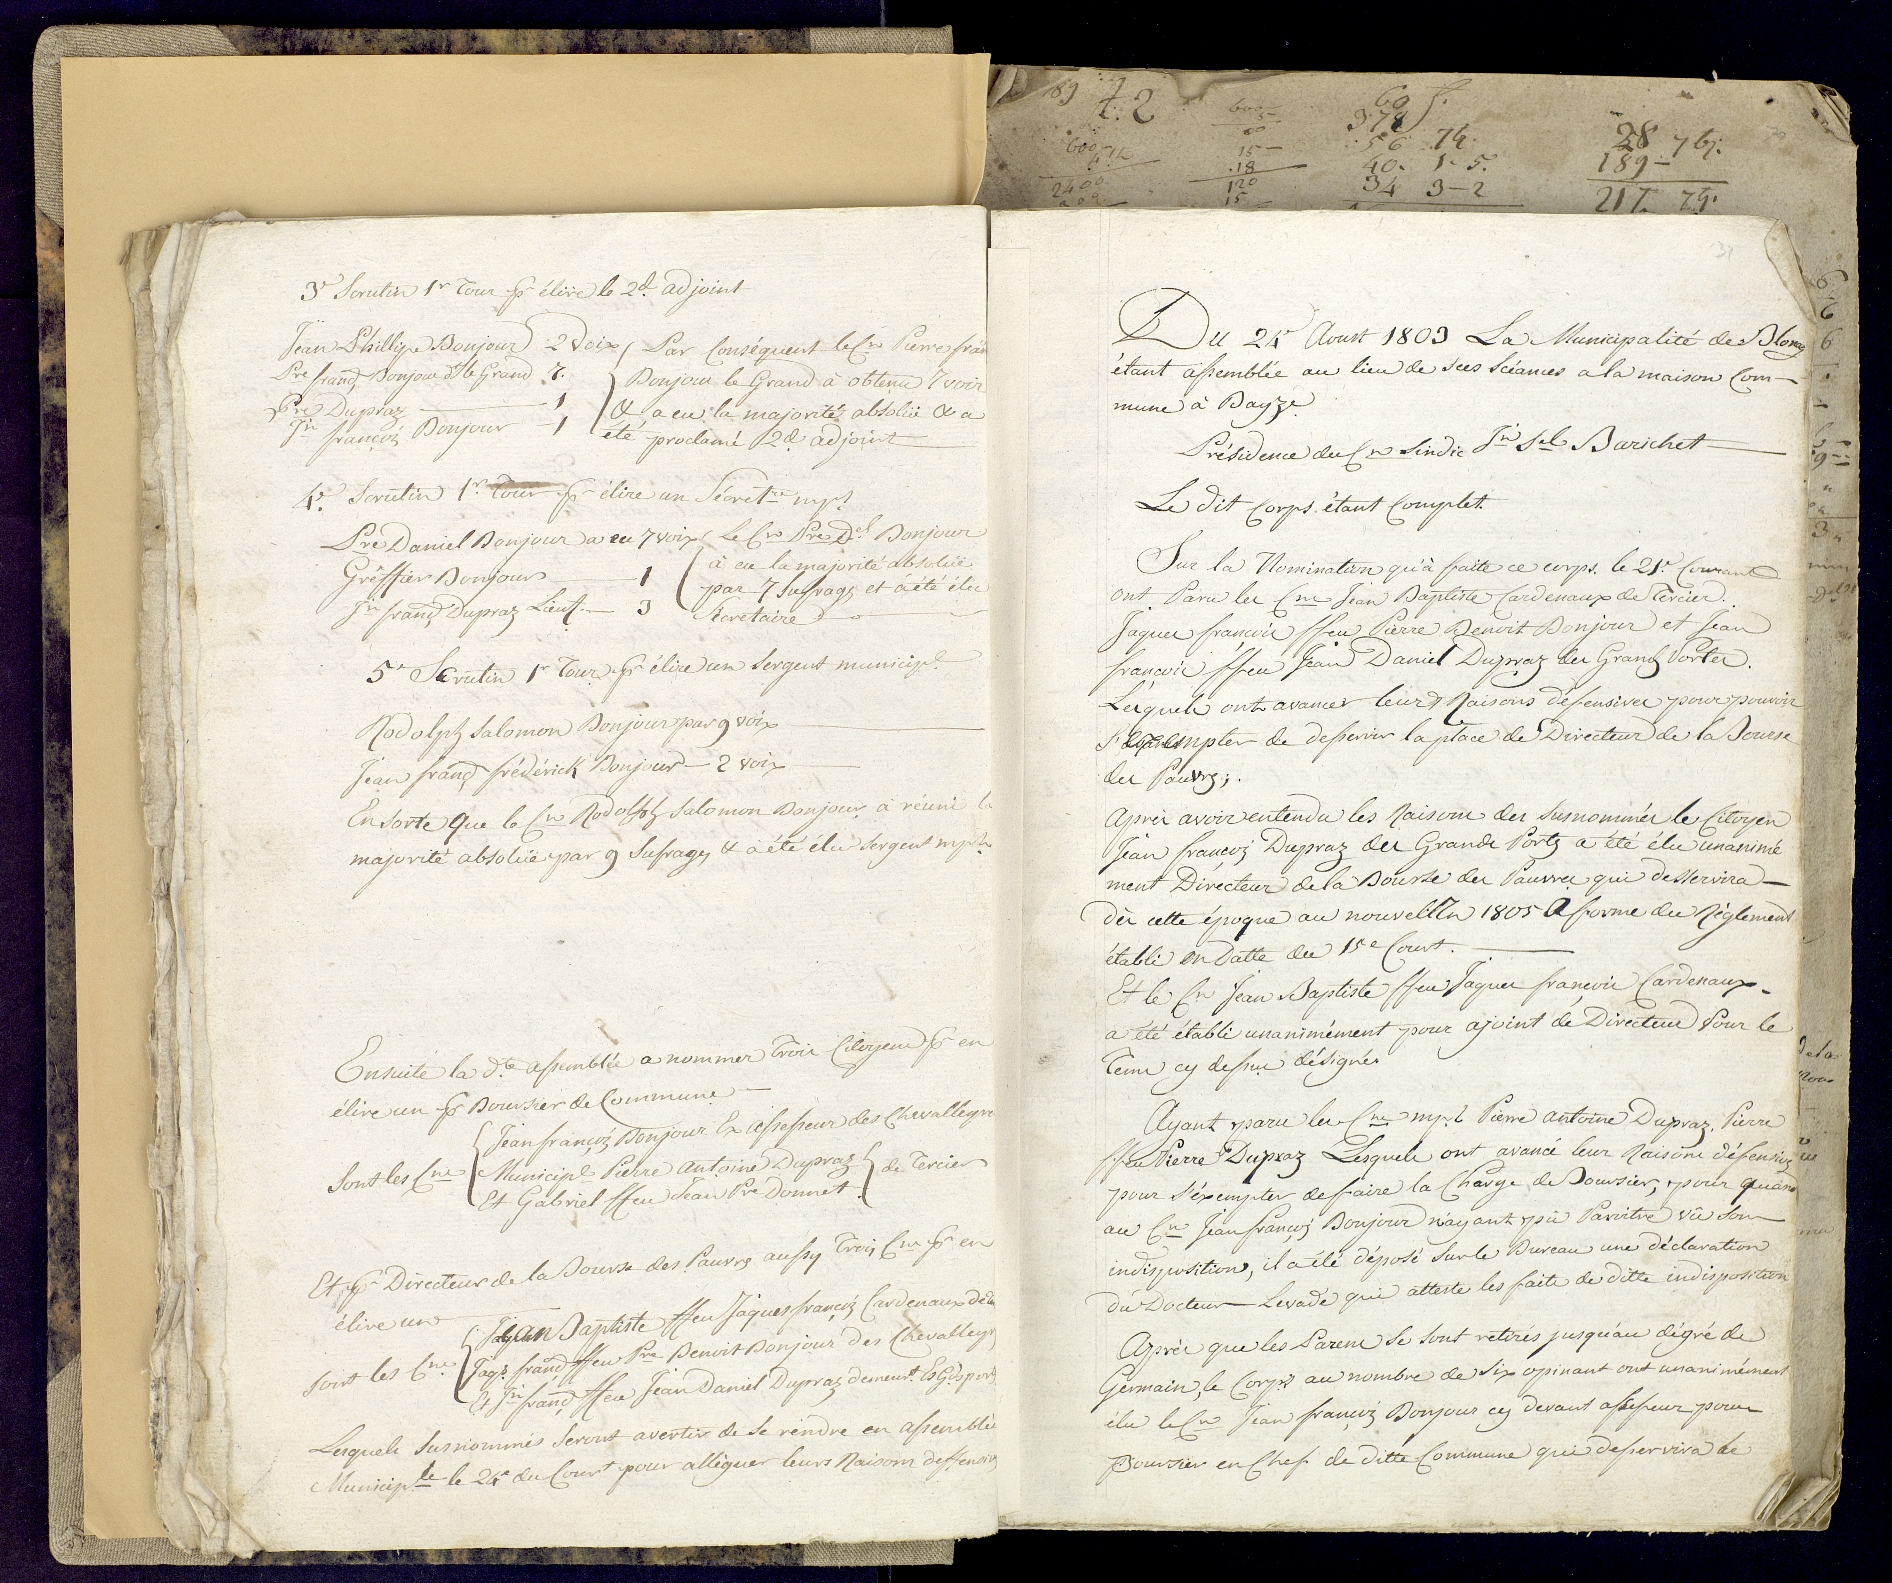 3e Scrutin 1r Tour pr élire le 2d. adjoint
Jean Phillipe Bonjour 2 Voix
Pre franç Bonjour d le Grand 7.
Pre Dupraz 1
Jn françois Bonjour 1
Par Conséquent le Cn Pierre fran
Bonjour le Grand à obtenu 7 voix
& a eu la majorité absolüe & a
été proclamé 2d. adjoint
4e. Scrutin 1r. Tour pr élire un Sécrètre mpl
Pre Daniel Bonjour a eu 7 voix
Gréffier Bonjour 1
Jn franç Dupraz Lieut. 3
Le Cn Pre Dl Bonjour
à eu la majorité absolüe
par 7 Sufrages et à été élu
Sécretaire
5e Scrutin 1r Tour pr élire un Sergent municipl
Rodolph Salomon Bonjour par 9 voix
Jean franç frédérick Bonjour 2 voix
En sorte que le Cn Rodolph Salomon Bonjour à réuni la
majorité absolüe par 9 Sufrages & à été élu Sergent mpl
Ensuite la dte assemblée a nommer Trois Citoyens pr en
élire un pr Boursier de Commune
Sont les Cns
Jean françois Bonjour Ex assesseur des Chevalleyre
Municipl Pierre Antoine Dupraz
Et Gabriel ffeu Jean Pre Donnet
de Tercier
Et pr Directeur de la Bourse des Pauvres aussy Trois Cns pr en
élire un
sont les Cns
Jean Baptiste ffeu Jaques françois Cardenaux de
Jaqs franç ffeu Pre Benoit Bonjour des Chevalleyr
Et Jn franç ffeu Jean Daniel Dupraz demeurt. Es Gds port
Lesquels Susnommés Seront avertis de se rendre en assemblée
Municiple le 24e du Court pour alléguer leurs Raisons deffensives
189 42
600
2400
600
15
.18
120
15
60 f.
378
56 .74.
40. 1. 5.
34 3-2
28 76.
189
217. 74.
31
Du 24e Aoust 1803 La Municipalité de Blonay
étant assemblée au lieu de sees séances a la maison Com-
mune à Bayze
Présidence du Cn Sindic Jn Sel Barichet
Le dit Corps étant Complet.
Sur la Nomination qu'à faite ce corps le 21e. Courant
ont Paru les Cns Jean Baptiste Cardenaux de Tercier.
Jaques françois ffeu Pierre Benoit Bonjour et Jean
françois ffeu Jean Daniel Dupraz des Grands Portes.
Lesquels onts avancer leurs Raisons défensives pour pouvoir
s'exempter de desservir la place de Directeur de la Bourse
des Pauvrs;.
Après avoir entendu les Raisons des susnommés le Citoyen
Jean françois Dupraz des Grands Ports a été élu unanimé
ment Directeur de la Bourse des Pauvres qui desservira
dès cette époque au nouvel An 1805 A forme du Réglement
établi en Datte du 15e Court.
Et le Cn Jean Baptiste ffeu Jaques françois Cardenaux
a été établi unanimément pour ajoint de Directeur Pour le
Tems cy dessus désigné
Ayant paru les Cns mpl Pierre antoine Dupraz, Pierre
ffeu Pierre Dupraz Lesquels ont avancé leur Raisons défensives
pour s'éxempter de faire la Charge de Boursier, pour quand
au Cn Jean françois Bonjour n'ayant pû Paroitre vû son
indisposition, il a été déposé sur le Bureau une déclaration
du Docteur Levade qui atteste les faits de ditte indisposition
Après que les Parens se sont retirés jusqu'au dégré de
Germain, le Corps au nombre de six opinant ont unanimément
élu le Cn Jean françois Bonjour cy devant assesseur pour
Boursier en Chef de ditte Commune qui desservira de